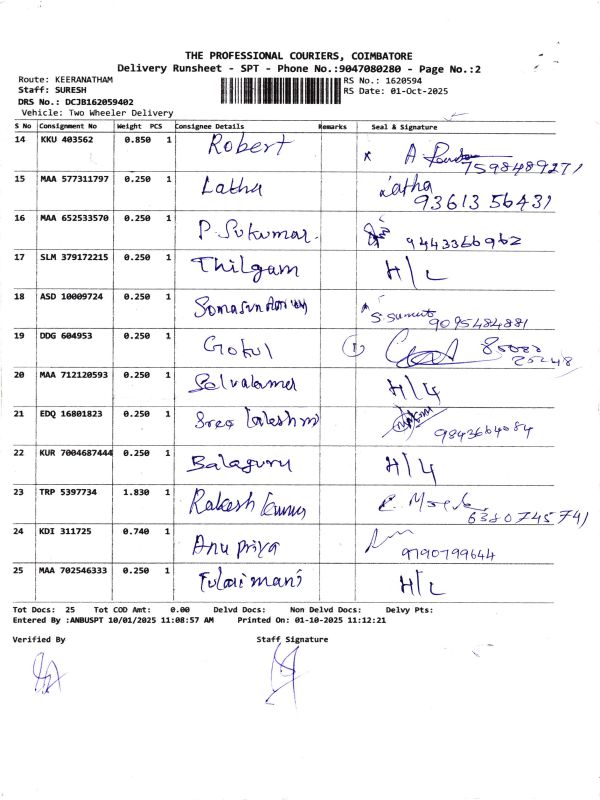 THE PROFESSIONAL COURIERS, COIMBATORE
Delivery Runsheet - SPT - Phone No.:9047080280 - Page No.:2
Route: KEERANATHAM RS No.: 1620594
Staff: SURESH RS Date: 01-Oct-2025
DRS No.: DCJB162059402
Vehicle: Two Wheeler Delivery
S No Consignment No Weight PCS Consignee Details Remarks Seal & Signature
14 KKU 403562 0.850 1 Robert A 7598489271
15 MAA 577311797 0.250 1 Latha Latha 9361356431
16 MAA 652533570 0.250 1 P. Sukumar. 9443366962
17 SLM 379172215 0.250 1 Thilgam H/L
18 ASD 10009724 0.250 1 9095484881
19 DDG 604953 0.250 1 Gokul 1
20 MAA 712120593 0.250 1 H/L
21 EDQ 16801823 0.250 1 9843664084
22 KUR 7004687444 0.250 1 Balaguru H/L
23 TRP 5397734 1.830 1 Rakesh Kumar 6380745741
24 KDI 311725 0.740 1 Anu priya 9790799644
25 MAA 702546333 0.250 1 H/L
Tot Docs: 25 Tot COD Amt: 0.00 Delvd Docs: Non Delvd Docs: Delvy Pts:
Entered By :ANBUSPT 10/01/2025 11:08:57 AM Printed On: 01-10-2025 11:12:21
Verified By Staff Signature